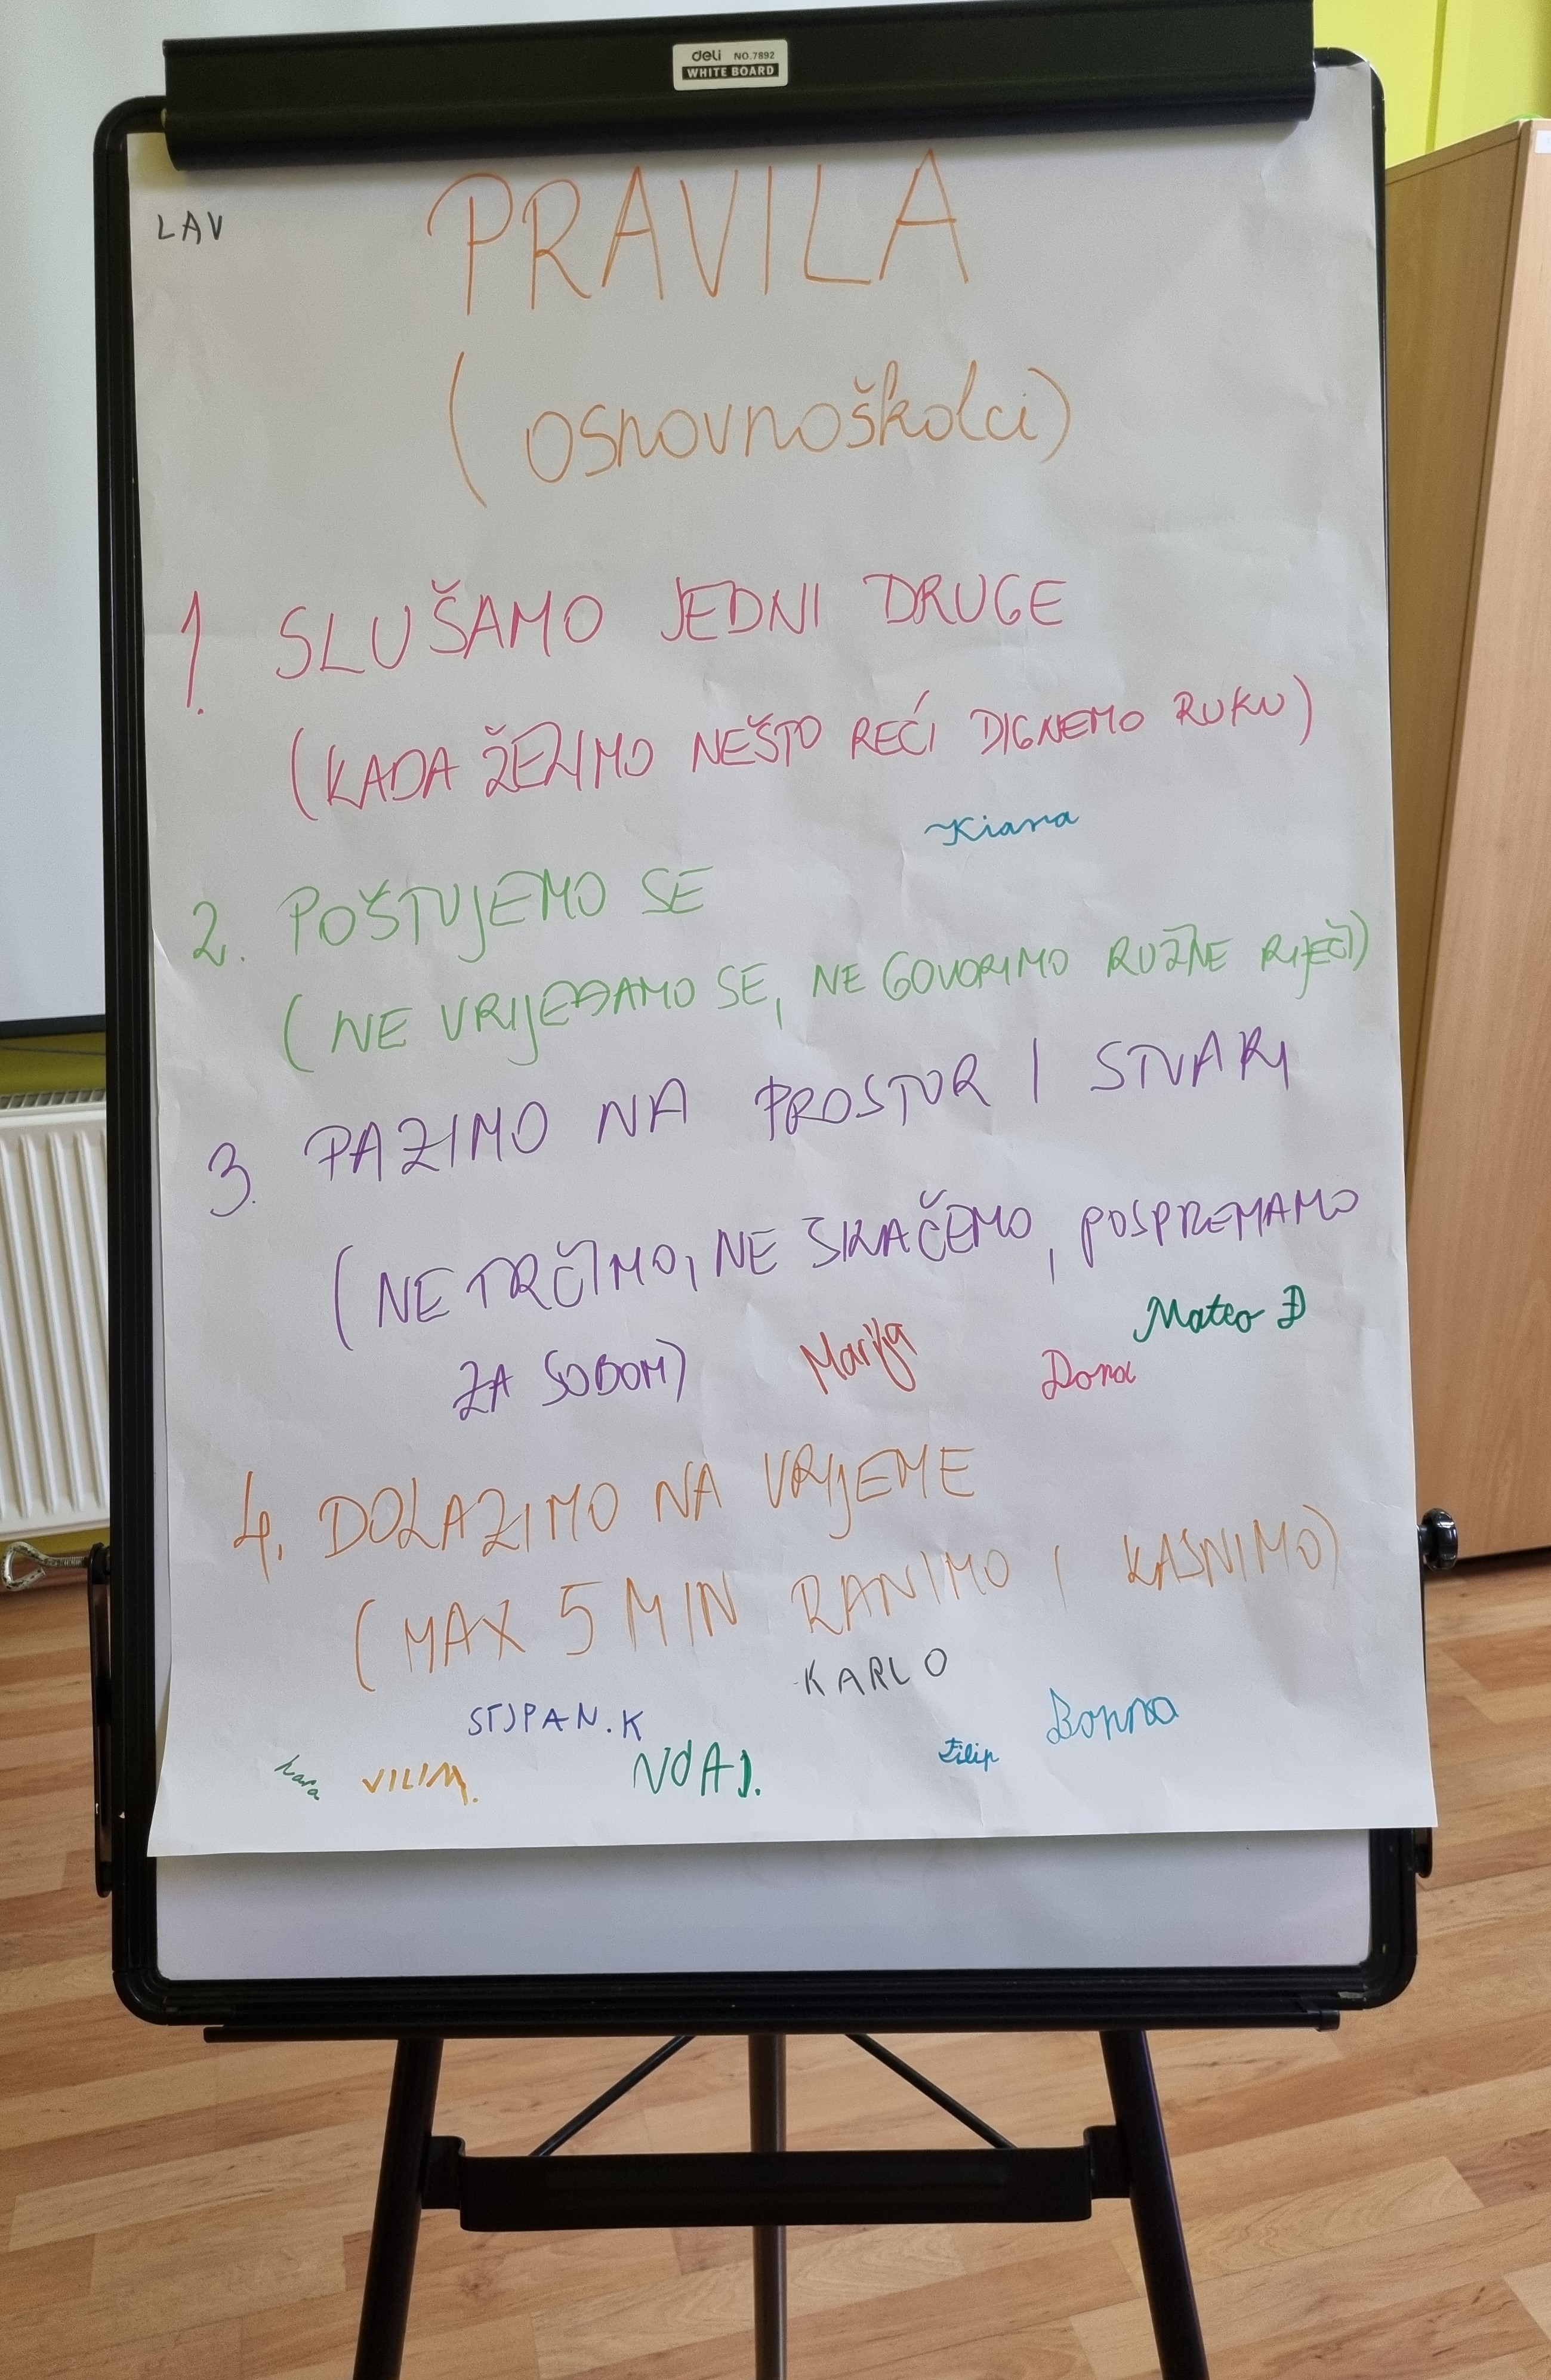 deli NO.7892
WHITE BOARD
LAV
PRAVILA
(osnovnoškolci)
1. SLUŠAMO JEDNI DRUGE
(KADA ŽELIMO NEŠTO REĆI DIGNEMO RUKU)
Kiara
2. POŠTUJEMO SE
(NE VRIJEĐAMO SE, NE GOVORIMO RUŽNE RIJEČI)
3. PAZIMO NA PROSTOR I STVARI
(NE TRČIMO, NE SKAČEMO, POSPREMAMO
ZA SOBOM)
Marija
Dora
Mateo Đ
4. DOLAZIMO NA VRIJEME
(MAX 5 MIN RANIMO I KASNIMO)
KARLO
STJPAN.K
Borna
Lara
VILIM.
NOA J.
Filip